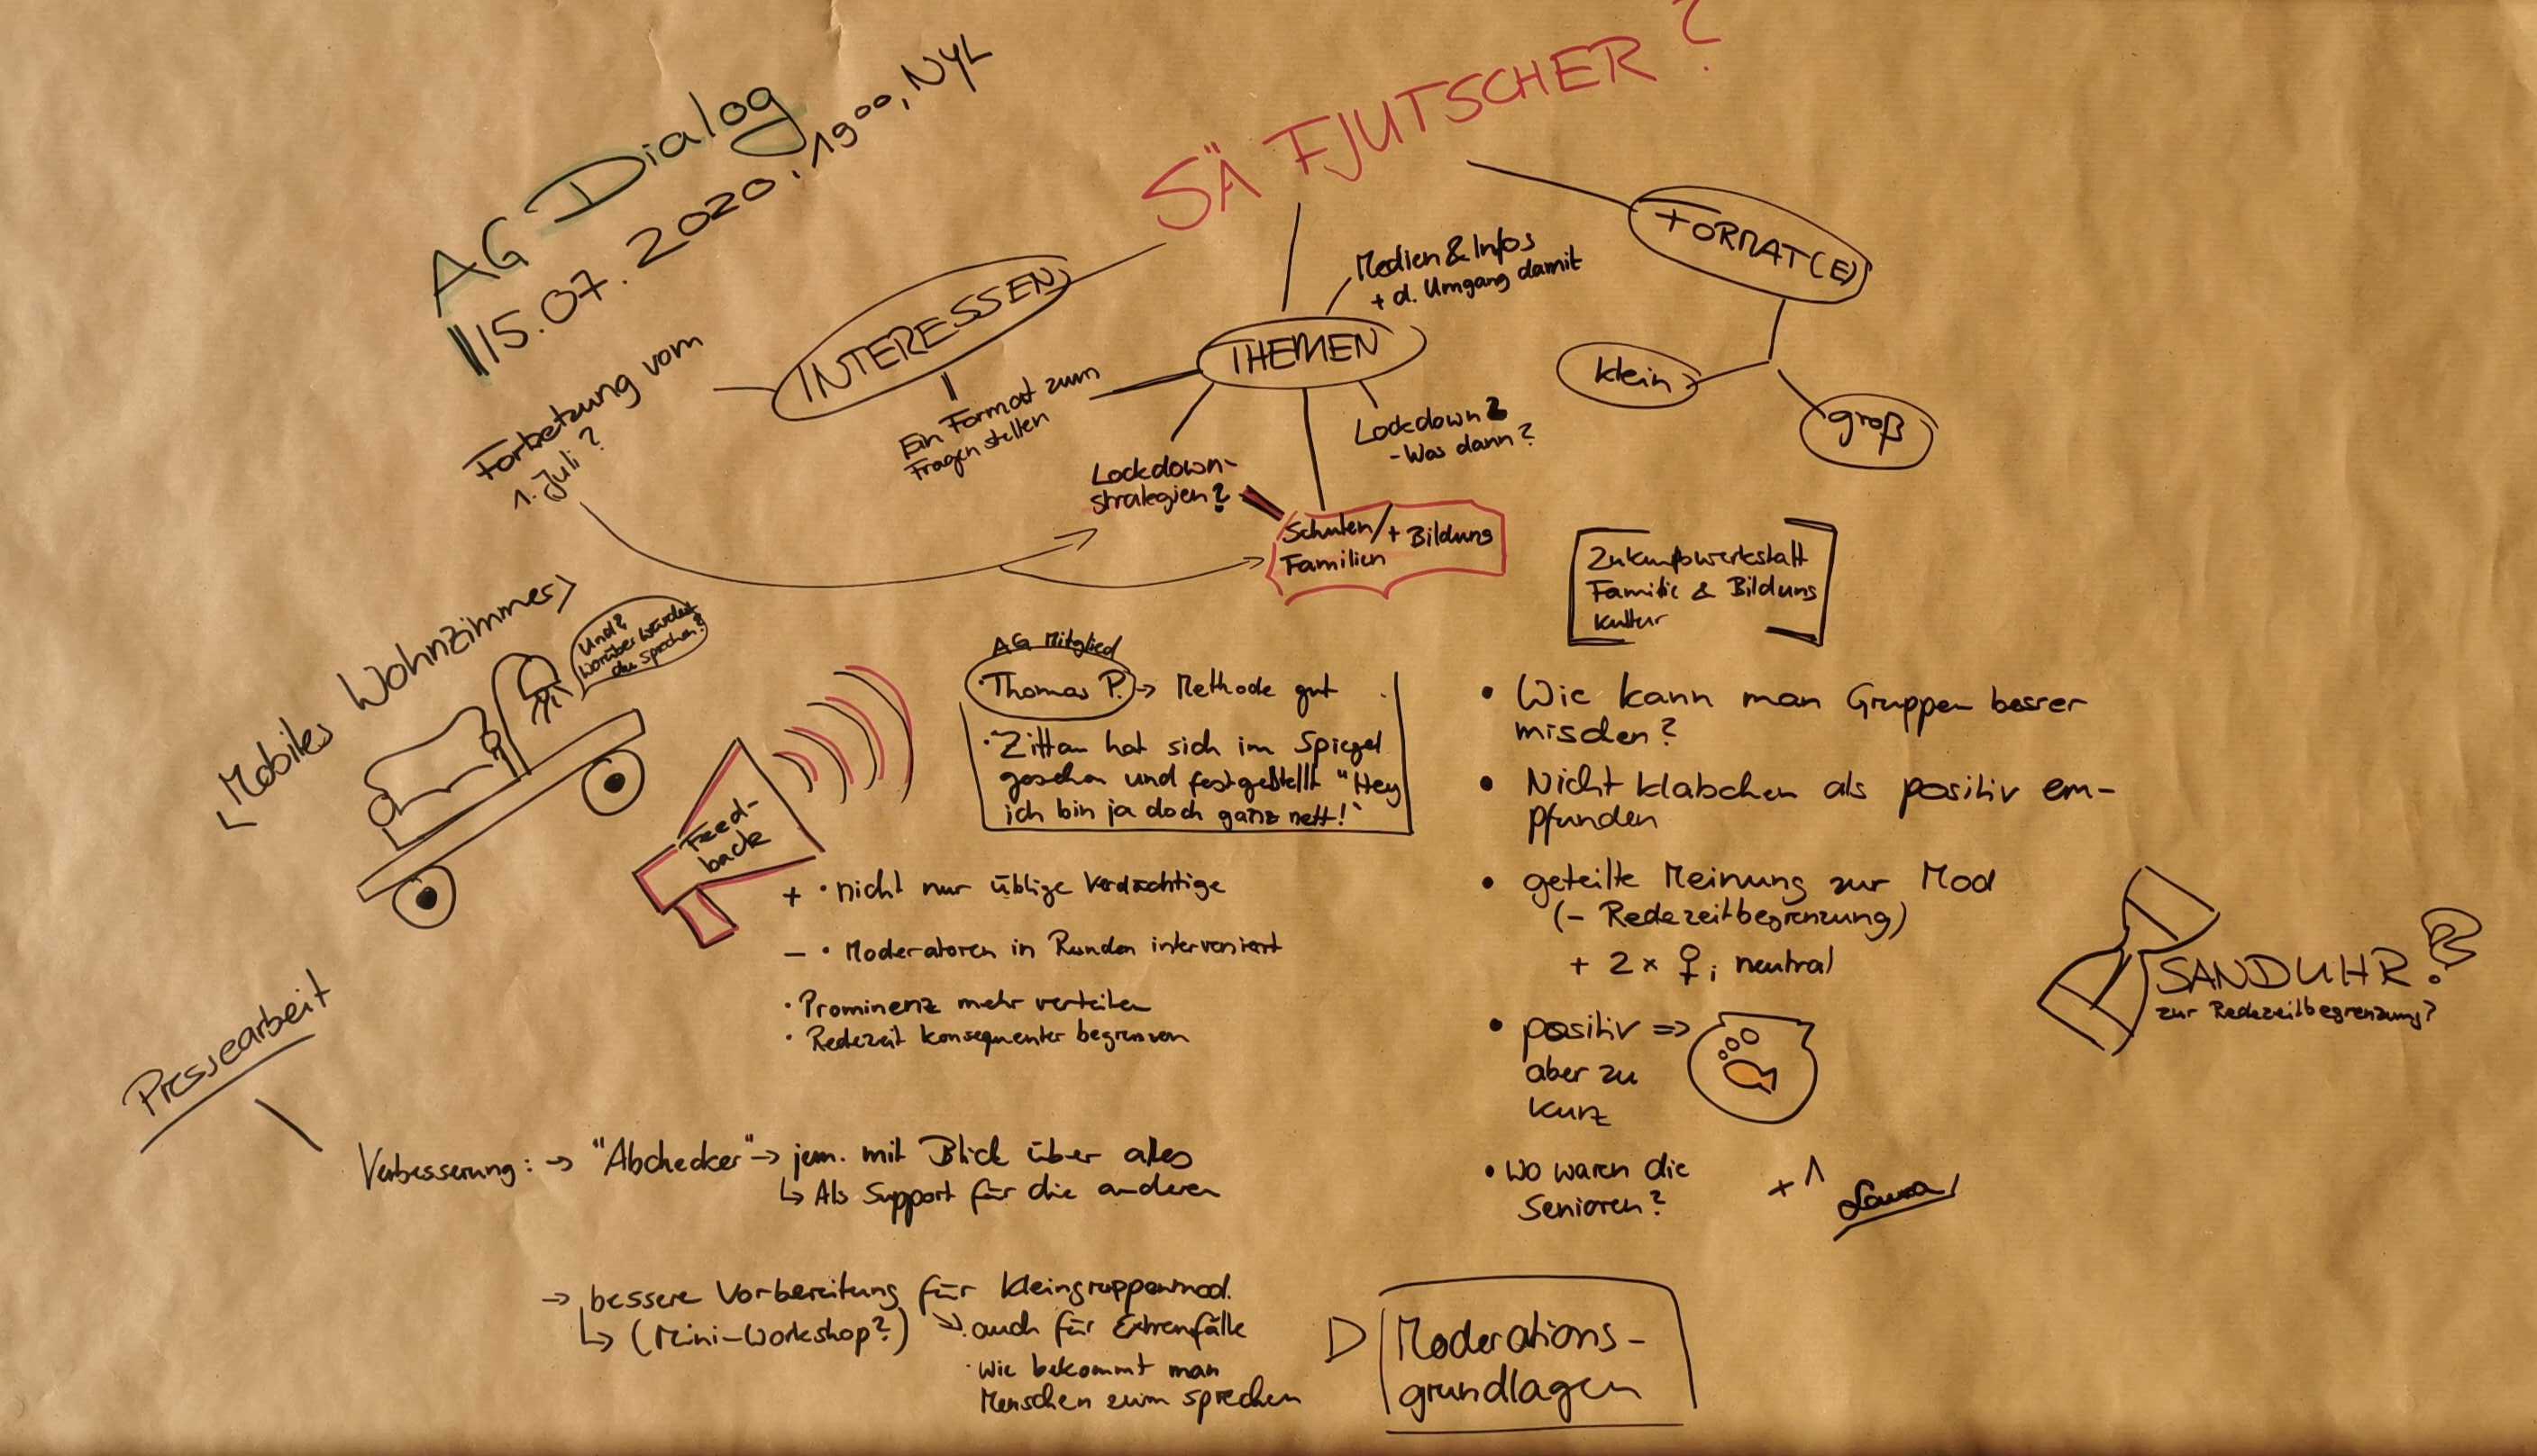 AG Dialog
15.07.2020, 19⁰⁰, NYL
Fortsetzung vom
1. Juli?
SÄ FJUTSCHER?
INTERESSEN
Ein Format zum
Fragen stellen
THEMEN
Medien & Infos
+ d. Umgang damit
Lockdown 2
- Was dann?
Lockdown-
strategien?
Schulen/ + Bildung
Familien
FORMAT(E)
klein
groß
Zukunftswerkstatt
Familie & Bildung
Kultur
<Mobiles Wohnzimmer>
Und?
Worüber würdest
du sprechen?
Feed-
back
AG Mitglied
• Thomas P. -> Methode gut
• Zittau hat sich im Spiegel
gesehen und festgestellt "Hey
ich bin ja doch ganz nett!"
+ • nicht nur üblige Verdächtige
- • Moderatoren in Runden interveniert
• Prominenz mehr verteilen
• Redezeit konsequenter begrenzen
• Wie kann man Gruppen besser
mischen?
• Nicht klabchen als positiv em-
pfunden
• geteilte Meinung zur Mod
(- Redezeitbegrenzung)
+ 2 x ♀; neutral
• positiv =>
aber zu
kurz
• Wo waren die
Senioren?
+1
Laura
SANDUHR?
zur Redezeitbegrenzung?
Pressearbeit
Verbesserung: -> "Abchecker" -> jem. mit Blick über alles
↳ Als Support für die anderen
-> bessere Vorbereitung für Kleingruppenmod.
↳ (Mini-Workshop?) ↘ • auch für Extremfälle
• Wie bekommt man
Menschen zum sprechen
▷ Moderations-
grundlagen